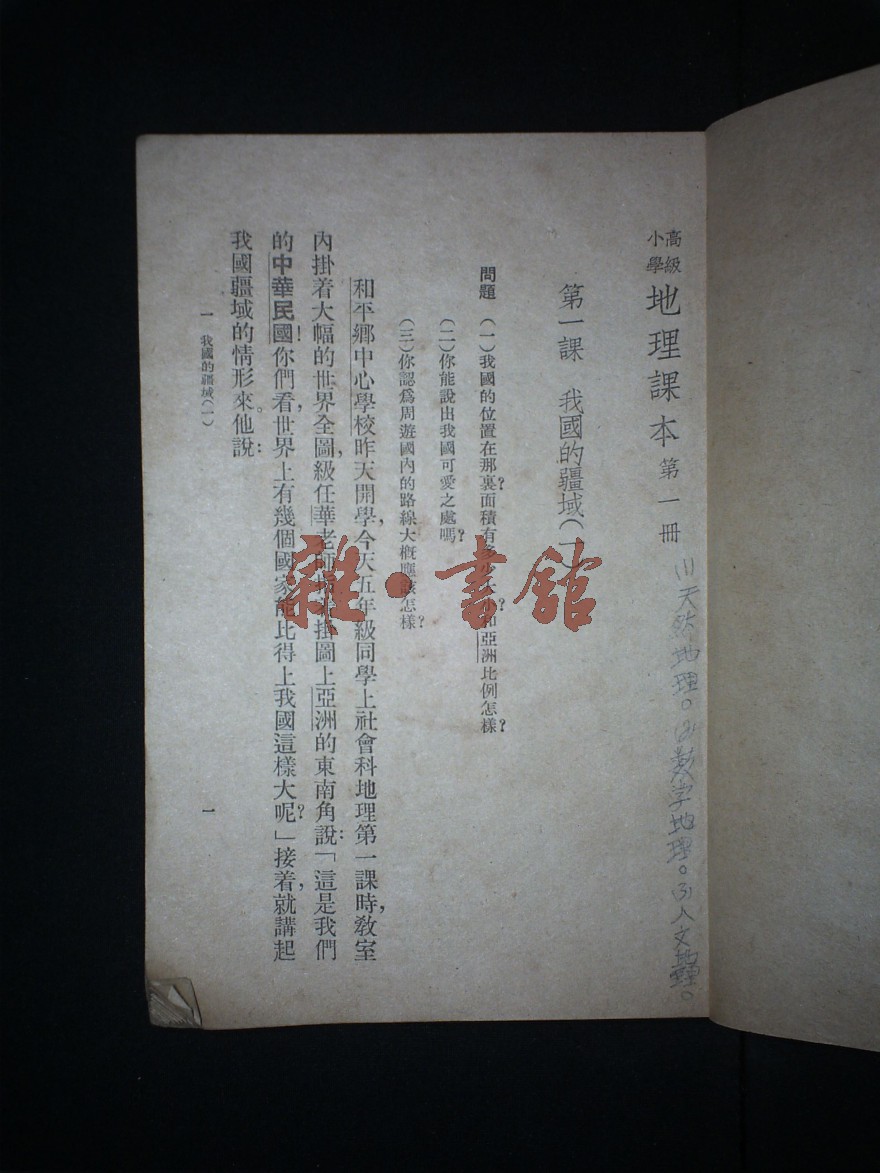 高級小學 地理課本 第一冊
(1)天然地理。(2)數字地理。(3)人文地理。
第一課　我國的疆域(一)
問題　(一)我國的位置在那裏?面積有多少大小?和亞洲比例怎樣?
(二)你能說出我國可愛之處嗎?
(三)你認爲周遊國內的路線大概應該怎樣?
和平鄉中心學校昨天開學,今天五年級同學上社會科地理第一課時,教室
內掛着大幅的世界全圖,級任華老師掛圖上亞洲的東南角說:「這是我們
的中華民國!你們看,世界上有幾個國家能比得上我國這樣大呢?」接着,就講起
我國疆域的情形來。他說:
一　我國的疆域(一)
一
雜·書館